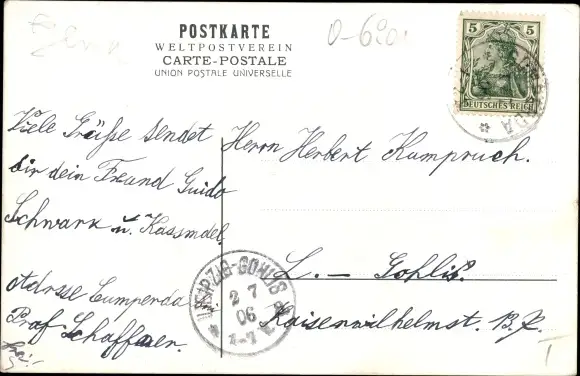 POSTKARTE
WELTPOSTVEREIN
CARTE-POSTALE
UNION POSTALE UNIVERSELLE
5 5
DEUTSCHES REICH
Viele Grüße sendet
dir dein Freund Guido
Schwark u. Kassmdel.
Adrsse Camperda
Prof. Schaffner.
frei.
Herrn Herbert Kampruch.
L. – Gohlis.
Kaiserwilhelmst.
LEIPZIG-GOHLIS
2 7
06